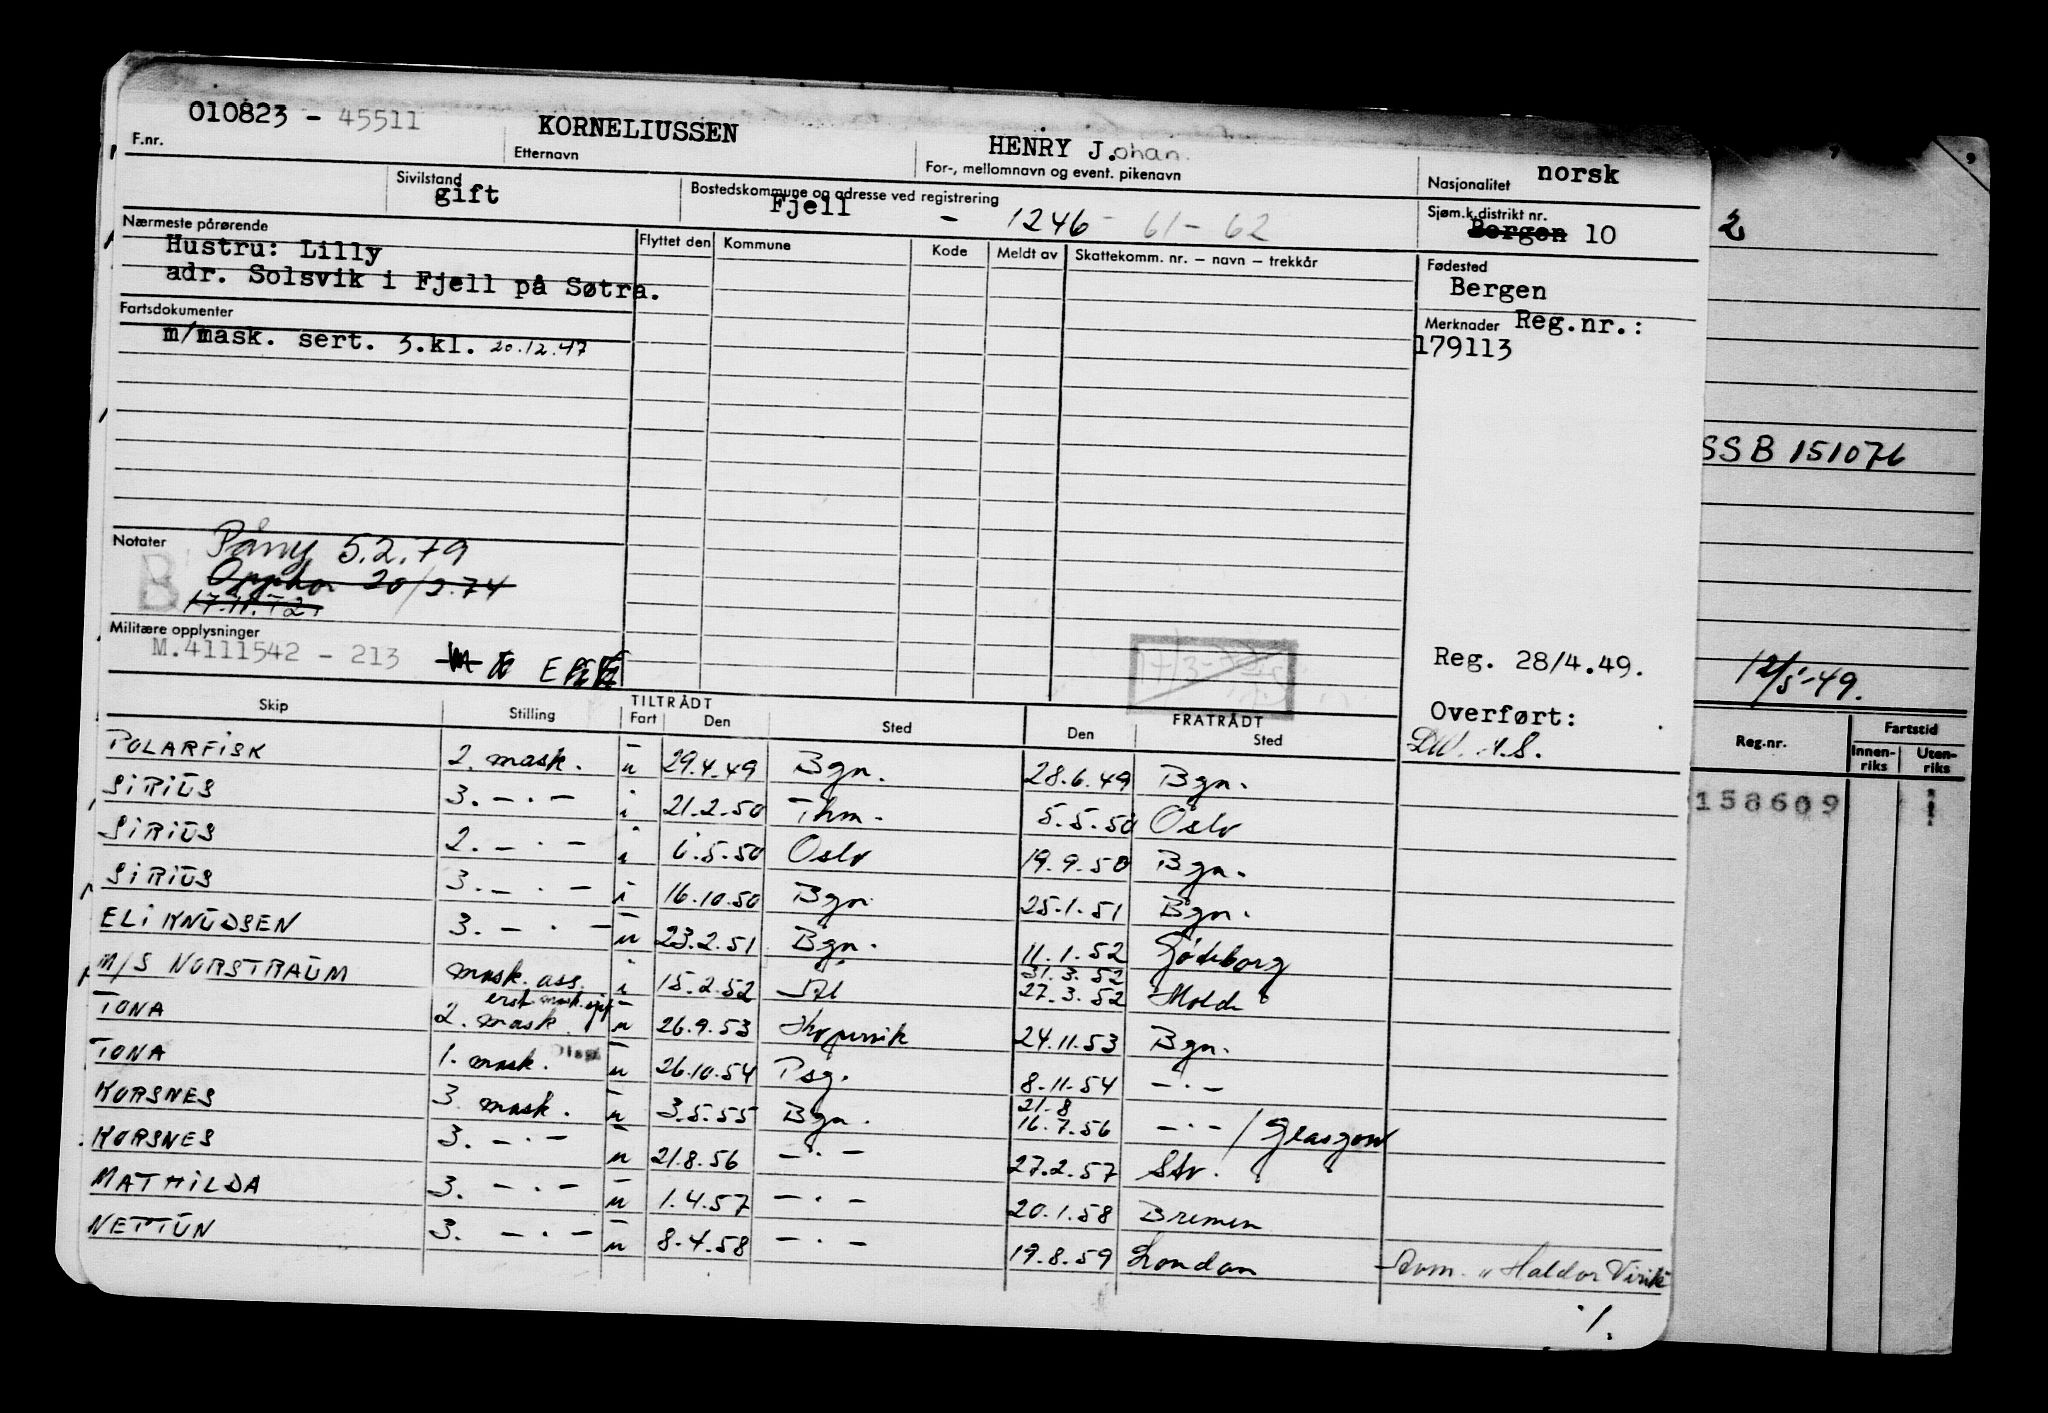 010823 - 45511 KORNELIUSSEN HENRY J.ohan. norsk
F.nr. Etternavn For-, mellomnavn og event. pikenavn Nasjonalitet
Sivilstand gift Bostedskommune og adresse ved registrering Fjell - 1246 - 61 - 62 Sjøm.k.distrikt nr. Bergen 10 2
Nærmeste pårørende Flyttet den Kommune Kode Meldt av Skattekomm. nr. – navn – trekkår Fødested
Hustru: Lilly Bergen
adr. Solsvik i Fjell på Søtra.
Fartsdokumenter Merknader Reg.nr.:
m/mask. sert. 3.kl. 20.12.47 179113
SSB 151076
Notater Påny 5.2.79
B Opphør 20/2.74
17.11.72
Militære opplysninger
M.4111542 - 213
Reg. 28/4.49. 12/5-49.
Overført:
Skip Stilling TILTRÅDT Fart Den Sted FRATRÅDT Den Sted Reg.nr. Fartstid Innen-riks Uten-riks
POLARFISK 2. mask. u 29.4.49 Bgn. 28.6.49 Bgn.
SIRIUS 3. — · — i 21.2.50 Thm. 5.5.50 Oslo 158609
SIRIUS 2. — · — i 6.5.50 Oslo 19.9.50 Bgn.
SIRIUS 3. — · — i 16.10.50 Bgn. 25.1.51 Bgn.
ELI KNUDSEN 3. — · — u 23.2.51 Bgn. 11.1.52 Gøteborg
M/S NORSTRAUM mask. ass. i 15.2.52 31.3.52 27.3.52 Molde
TONA 2. mask. u 26.9.53 Kopervik 24.11.53 Bgn.
TONA 1. mask. u 26.10.54 Psg. 8.11.54 — · —
KORSNES 3. mask. u 3.5.55 Bgn. 21.8 16.7.56 — · — / Glasgow
KORSNES 3. — · — u 21.8.56 — · — 27.2.57 Stv.
MATHILDA 3. — · — u 1.4.57 — · — 20.1.58 Bremen
NETTUN 3. — · — u 8.4.58 — · — 19.8.59 London "Haldor Virik"
·/.